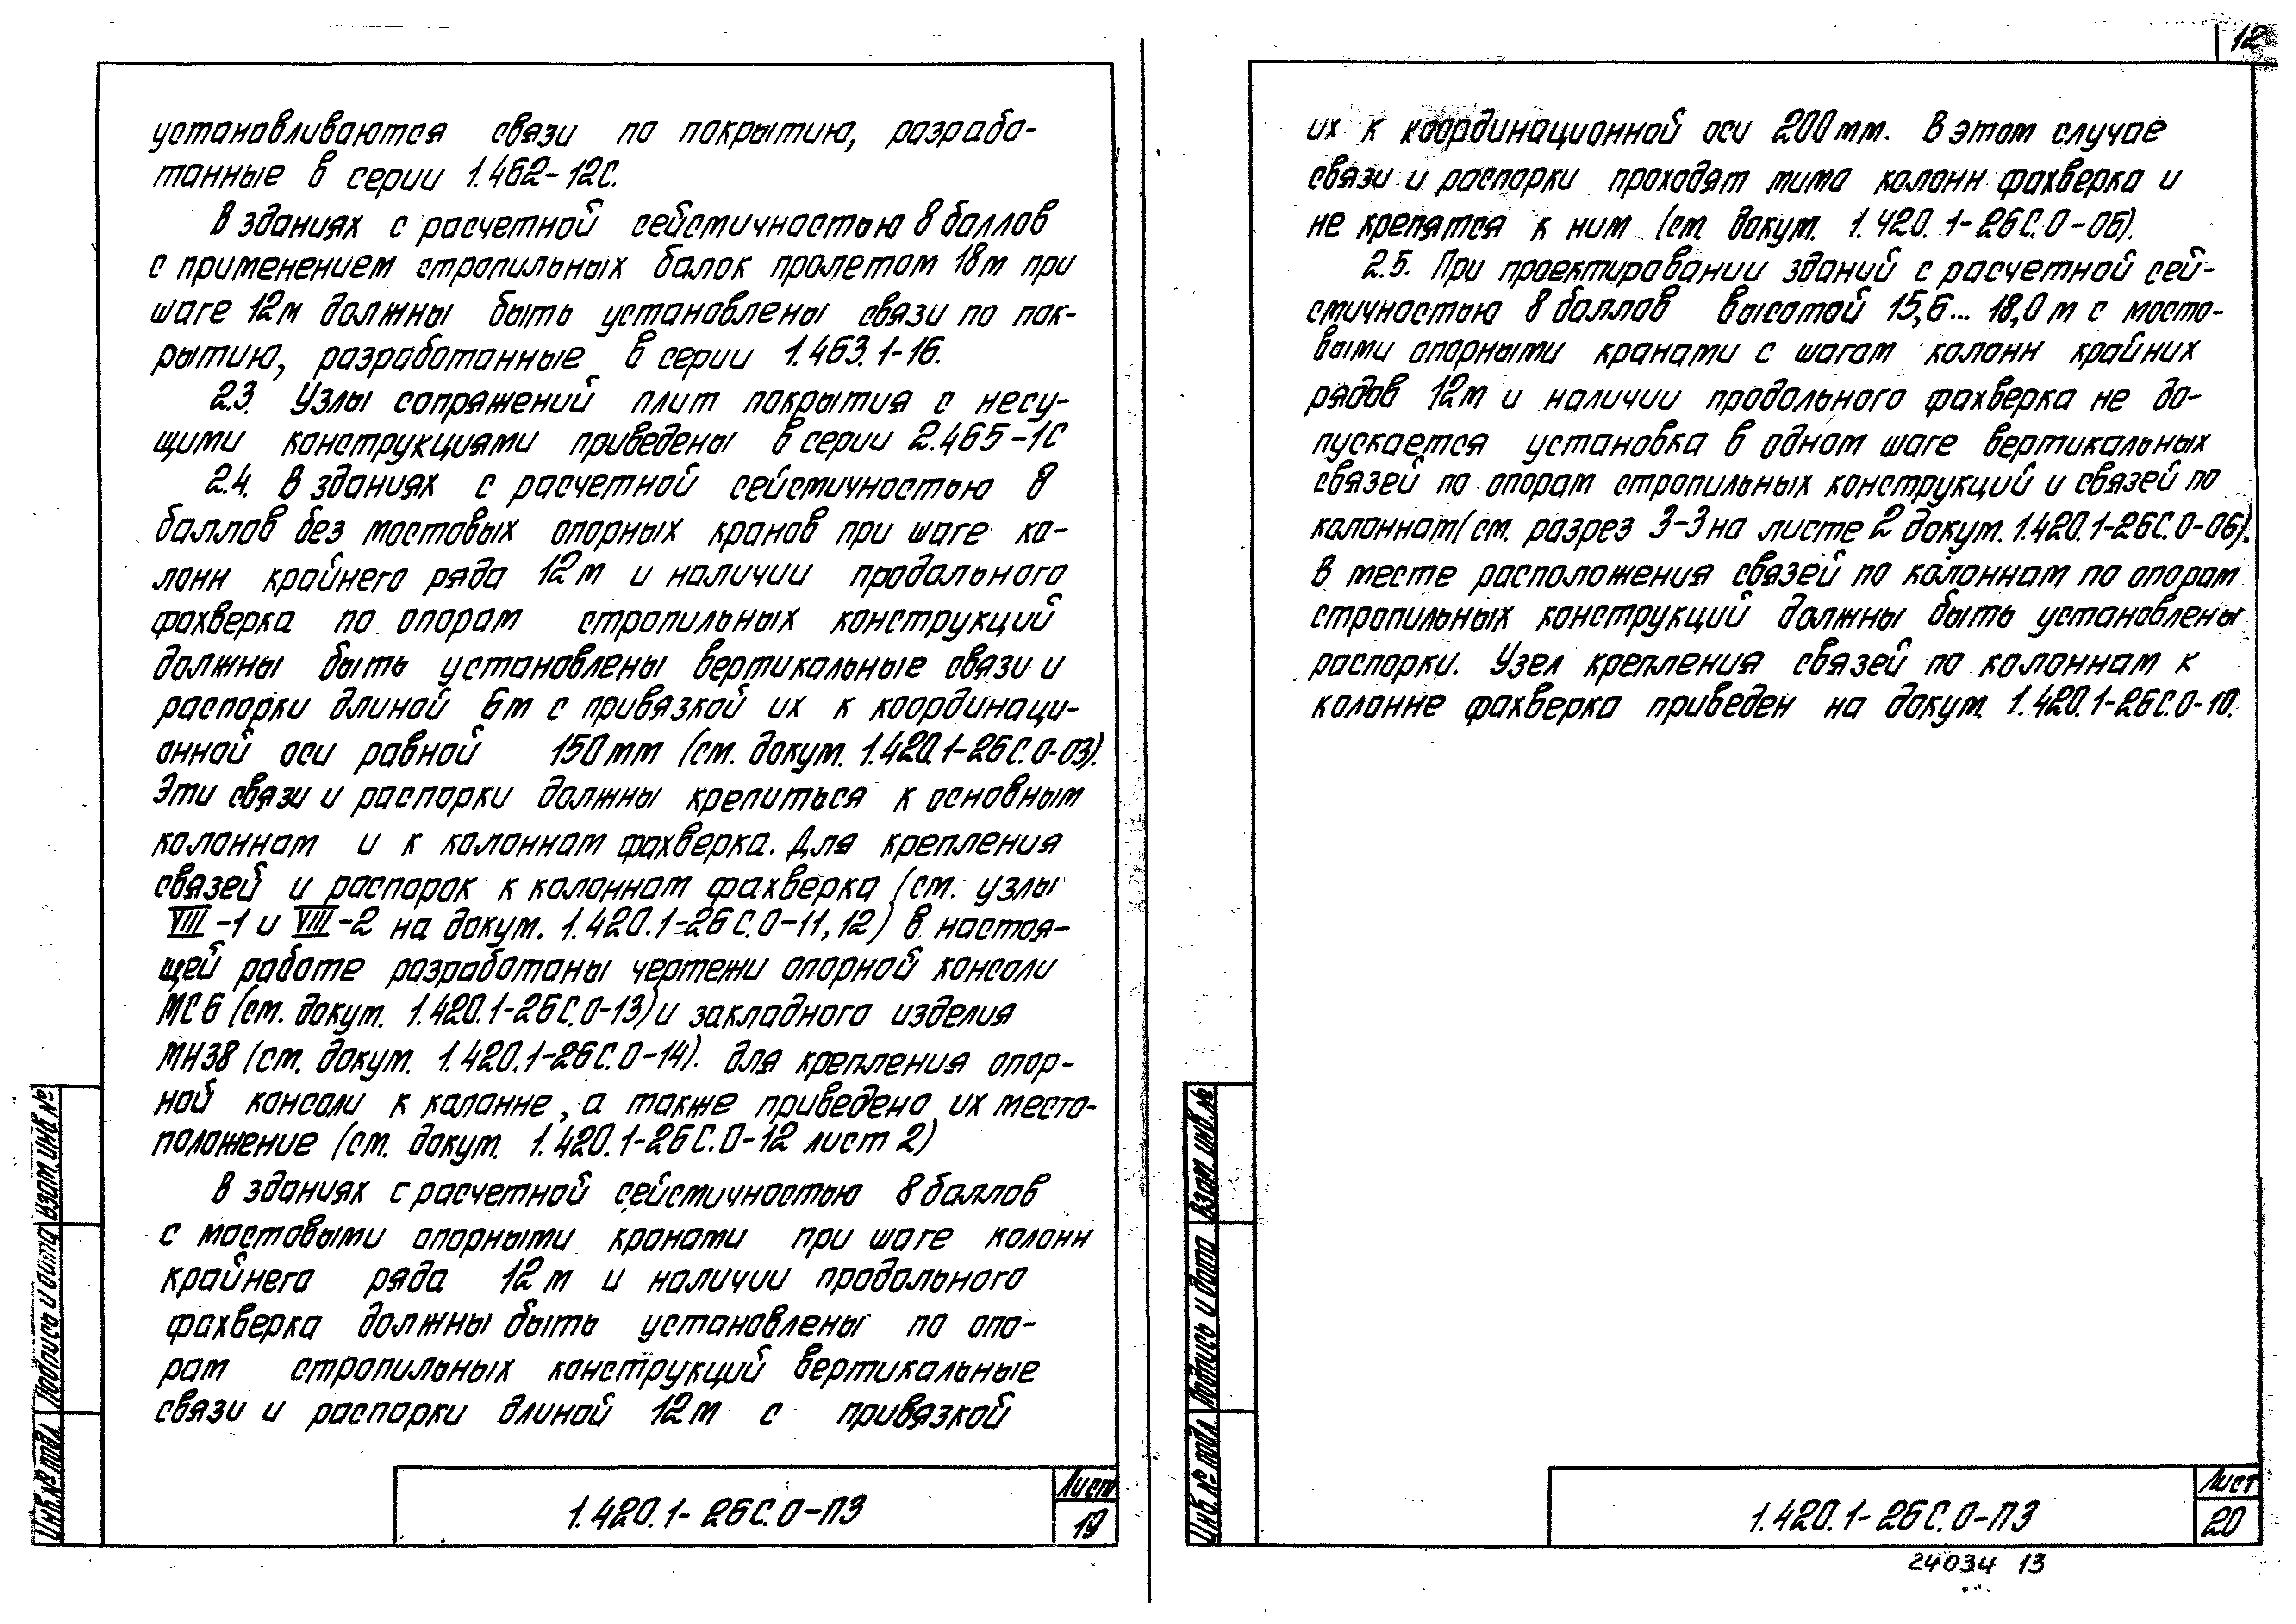 устанавливаются связи по покрытию, разрабо-
танные в серии 1.462-12С.
В зданиях с расчетной сейсмичностью 8 баллов
с применением стропильных балок пролетом 18м при
шаге 12м должны быть установлены связи по пок-
рытию, разработанные в серии 1.463.1-16.
2.3. Узлы сопряжений плит покрытия с несу-
щими конструкциями приведены в серии 2.465-1С
2.4. В зданиях с расчетной сейсмичностью 8
баллов без мостовых опорных кранов при шаге ко-
лонн крайнего ряда 12м и наличии продольного
фахверка по опорам стропильных конструкций
должны быть установлены вертикальные связи и
распорки длиной 6м с привязкой их к координаци-
онной оси равной 150мм (см. докум. 1.420.1-26С.0-03).
Эти связи и распорки должны крепиться к основным
колоннам и к колоннам фахверка. Для крепления
связей и распорок к колоннам фахверка (см. узлы
VIII-1 и VIII-2 на докум. 1.420.1-26С.0-11, 12) в настоя-
щей работе разработаны чертежи опорной консоли
МС6 (см. докум. 1.420.1-26С.0-13) и закладного изделия
МН38 (см. докум. 1.420.1-26С.0-14). для крепления опор-
ной консоли к колонне, а также приведено их место-
положение (см. докум. 1.420.1-26С.0-12 лист 2)
В зданиях с расчетной сейсмичностью 8 баллов
с мостовыми опорными кранами при шаге колонн
крайнего ряда 12м и наличии продольного
фахверка должны быть установлены по опо-
рам стропильных конструкций вертикальные
связи и распорки длиной 12м с привязкой
Инв.№ подл. Подпись и дата Взам.инв.№
1.420.1-26С.0-ПЗ
Лист
19
12
их к координационной оси 200мм. В этом случае
связи и распорки проходят мимо колонн фахверка и
не крепятся к ним (см. докум. 1.420.1-26С.0-06).
2.5. При проектировании зданий с расчетной сей-
смичностью 8 баллов высотой 15,6... 18,0м с мосто-
выми опорными кранами с шагом колонн крайних
рядов 12м и наличии продольного фахверка не до-
пускается установка в одном шаге вертикальных
связей по опорам стропильных конструкций и связей по
колоннам (см. разрез 3-3 на листе 2 докум. 1.420.1-26С.0-06).
В месте расположения связей по колоннам по опорам
стропильных конструкций должны быть установлены
распорки. Узел крепления связей по колоннам к
колонне фахверка приведен на докум. 1.420.1-26С.0-10.
Инв.№ подл. Подпись и дата Взам.инв.№
1.420.1-26С.0-ПЗ
Лист
20
24034 13